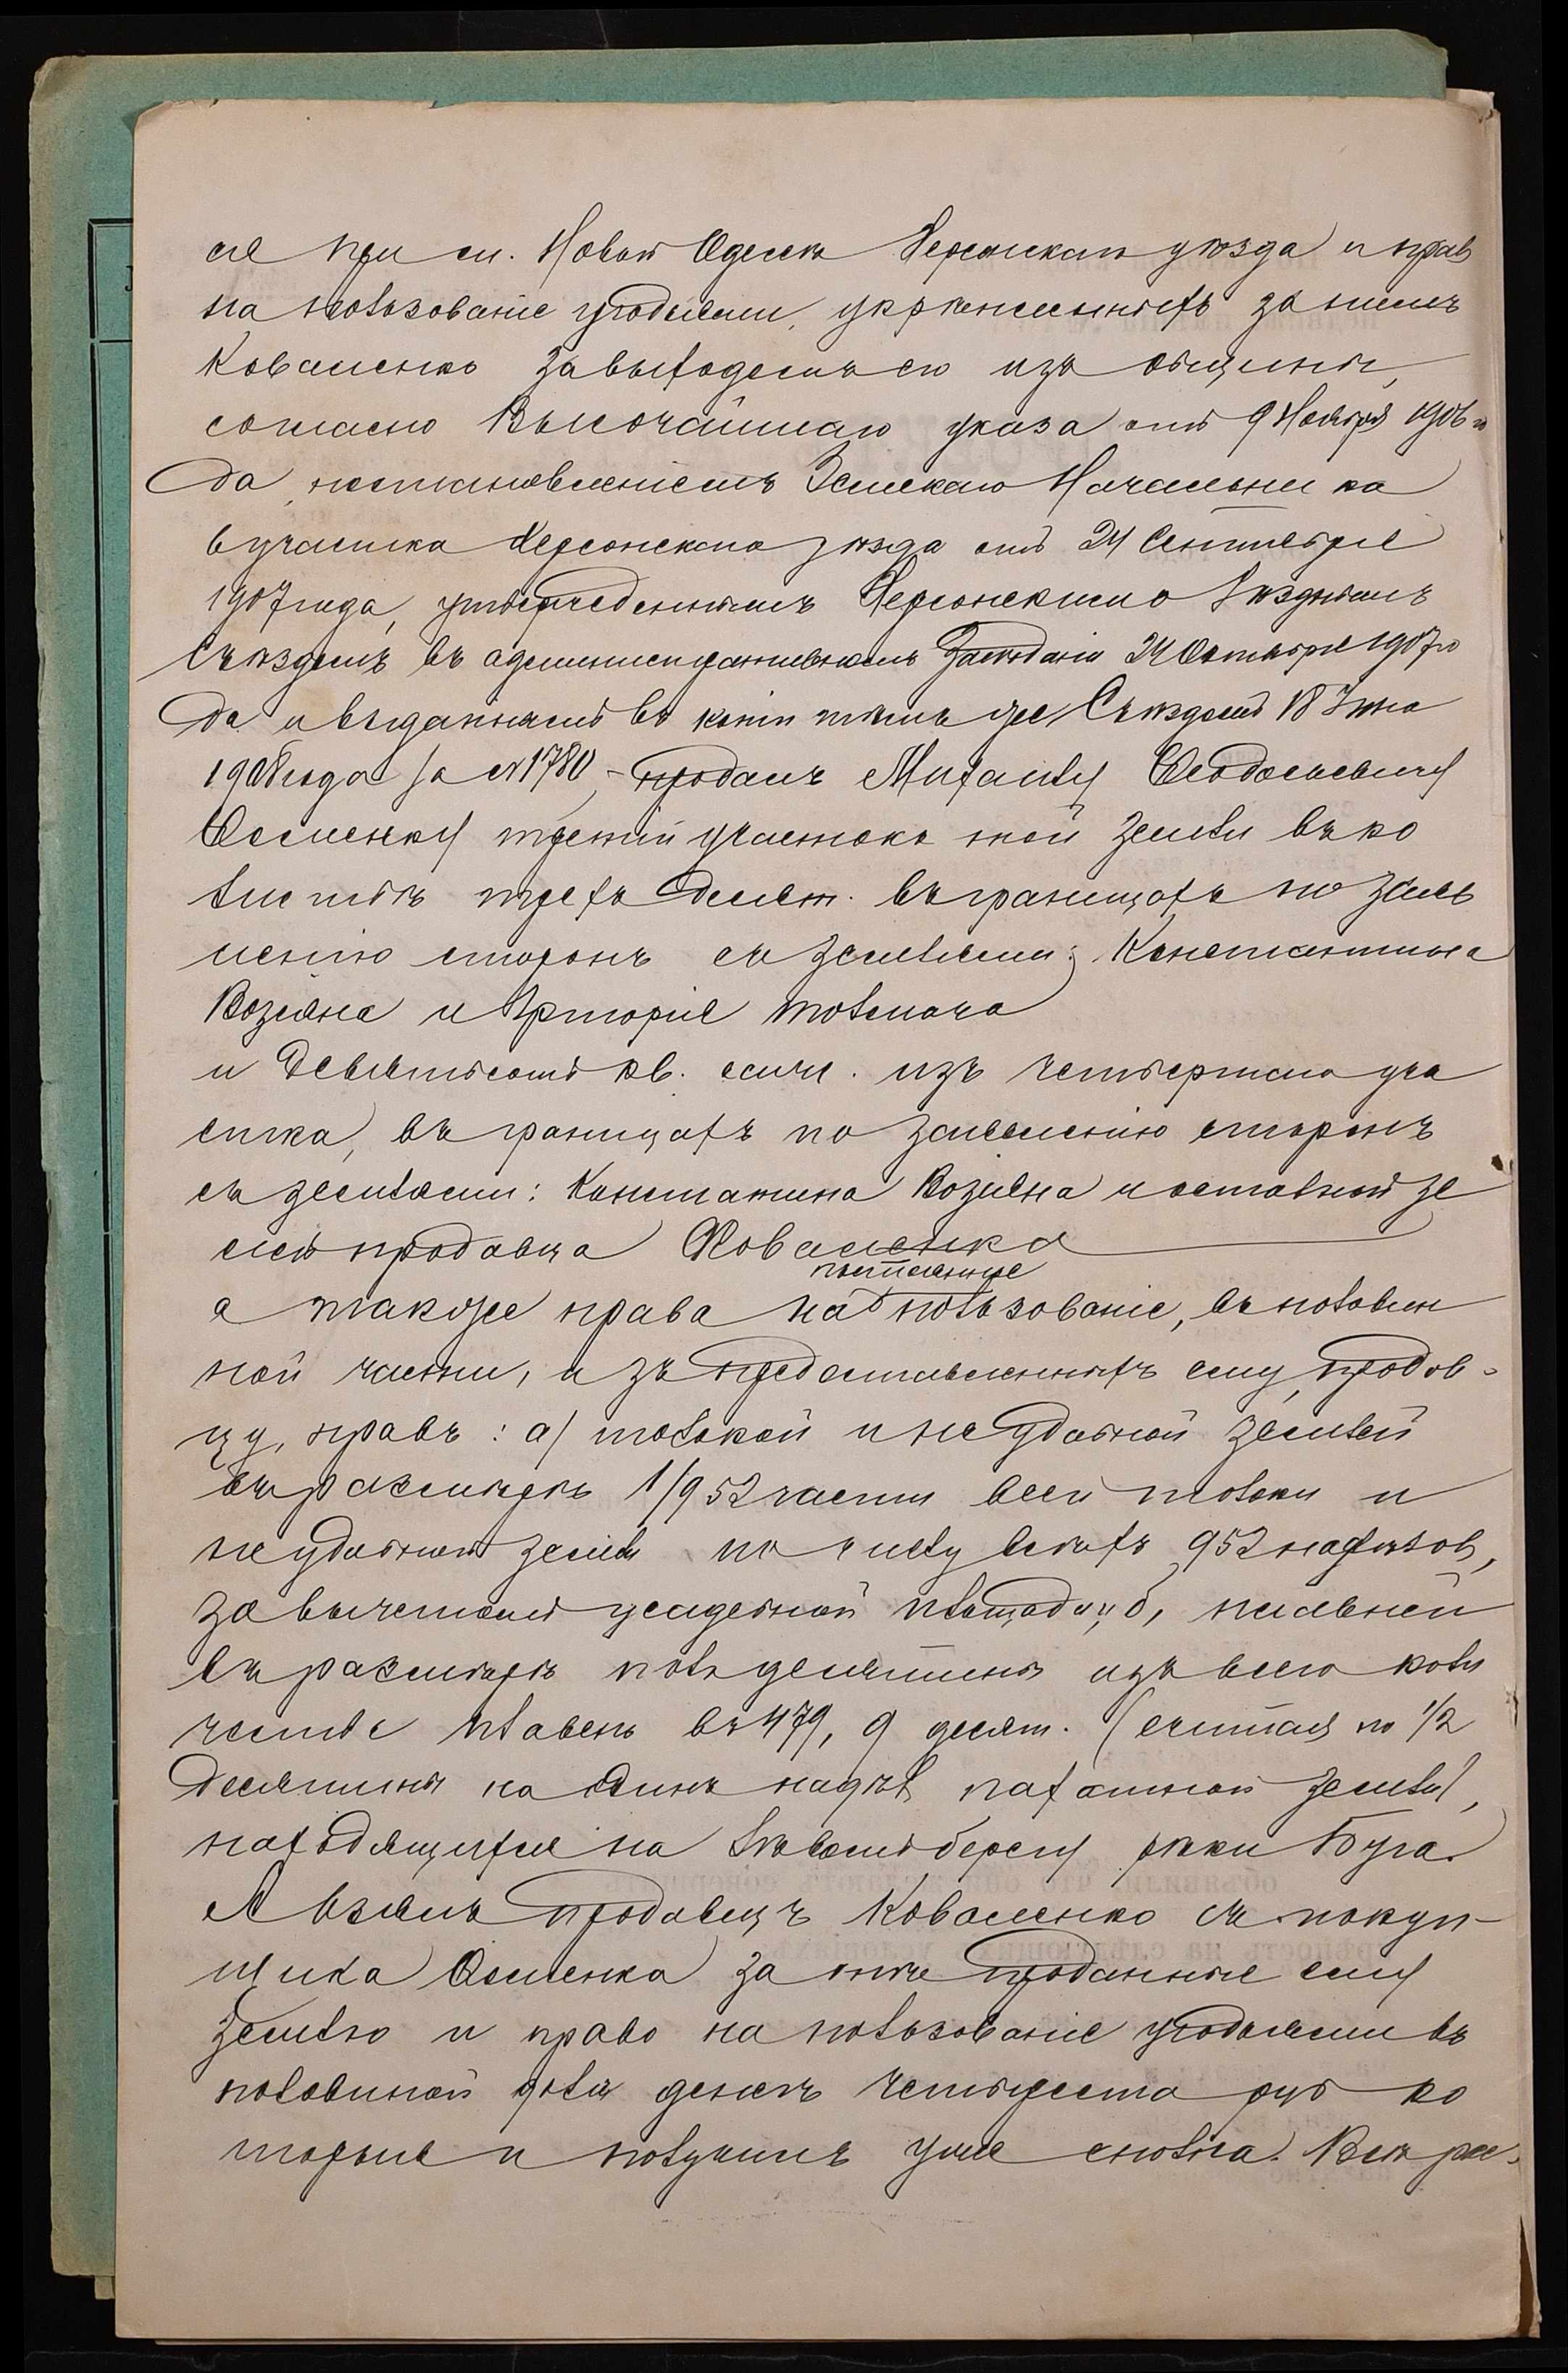 ся при сл. Новой Одессѣ Херсонскаго уѣзда и прав
на пользованіе угодьями, укрѣпленныхъ за нимъ
Коваленко за выходомъ его изъ общины,
согласно Высочайшаго указа отъ 9 Ноября 1906 го
да, постановленіемъ Земскаго Начальника
6 участка Херсонскаго уѣзда отъ 24 Сентября
1907 года, утвержденнымъ Херсонскимъ Уѣзднымъ
Съѣздомъ въ административномъ засѣданіи 24 Октября 1907 го
да и выданнымъ въ копіи тѣмъ же Съѣздомъ 18 Іюня
1908 года за № 1780, - продалъ Михаилу Ѳеодосьевичу
Осипенку третій участокъ той земли въ ко
личествѣ трехъ десят. въ границахъ по заяв
ленію сторонъ съ землями: Константина
Возіяна и Григорія Толмача
и девятьсотъ кв. саж. изъ четвертаго уча
стка, въ границахъ по заявленію сторонъ
съ землями: Константина Возіяна и остальной зе
млей продавца Коваленка
постоянное
а также права на пользованіе, въ половин
ной части, изъ предоставленныхъ ему, продав-
цу, правъ: а) толокой и неудобной землей
въ размѣрѣ 1/952 части всей толоки и
неудобной земли по числу всѣхъ 952 надѣловъ,
за вычетомъ усадебной площади, б, плавней
въ размѣрѣ полъ десятины изъ всего коли
чества плавень въ 479, 9 десят. (считая по 1/2
десятины на одинъ надѣлъ пахатной земли),
находящихся на лѣвомъ берегу рѣки Буга.
А взялъ продавецъ Коваленко съ покуп-
щика Осипенка за тѣ проданные ему
землю и право на пользованіе угодьями въ
половиной доли денегъ четыреста руб ко
торые и получилъ уже сполна. Всѣ рас-